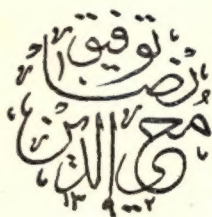 توفيق
رضا
محي
الدين